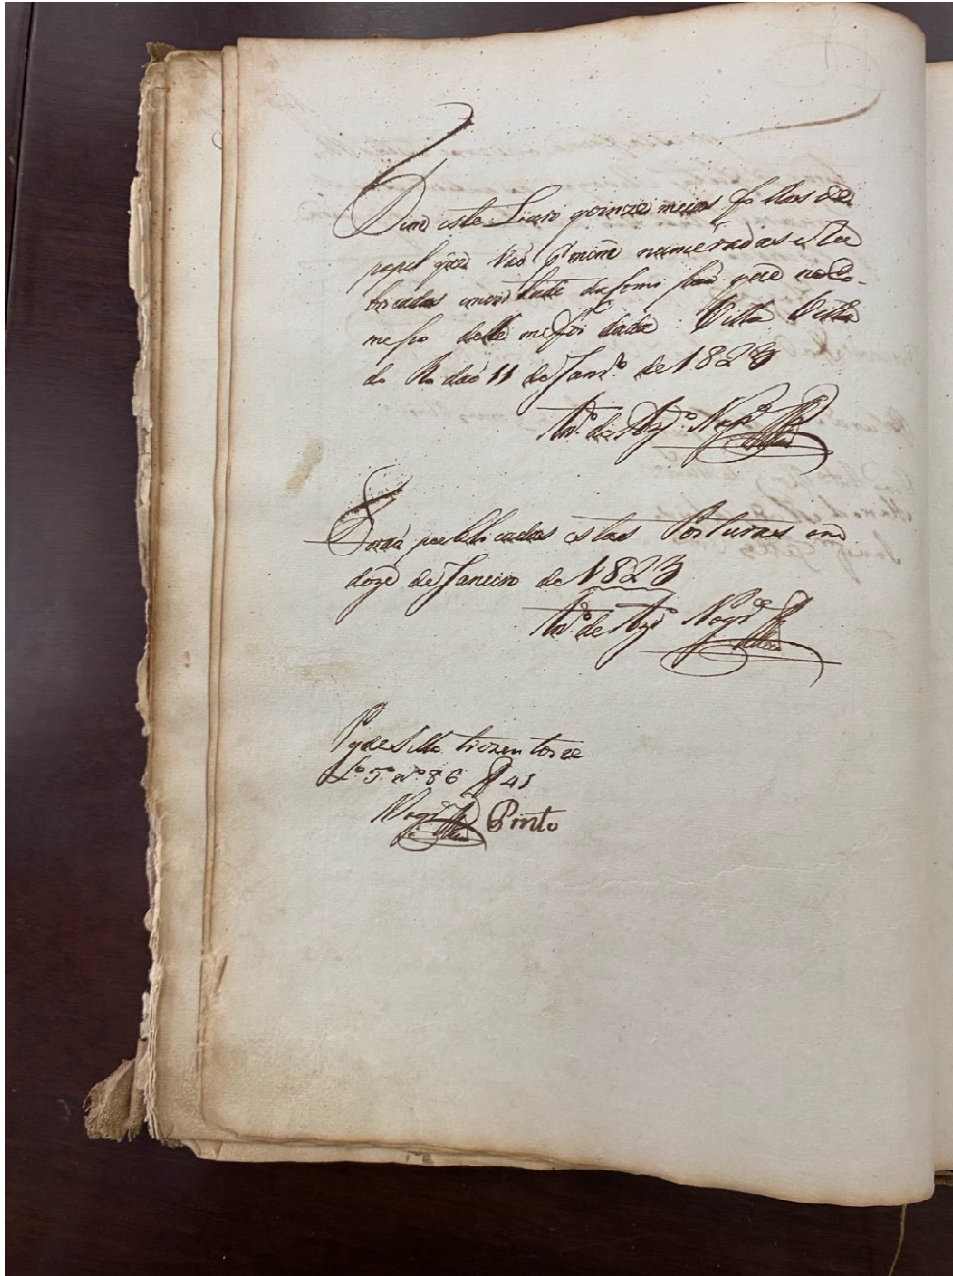 Tem este Livro quinze meias folhas de
papel que vão por mim numeradas e Ru
bricadas em virtude da Comissão que no Co-
meço delle me foi dada. Villa Velha
do Rodão 11 de Janr.º de 1823
An.to de Arj.º Nogr.ª
Forão publicadas estas Posturas em
doze de Janeiro de 1823
An.to de Arj.º Nogr.ª
Pg de Sello trezentos e
L.º 5.º n.º 86 f 41
Nogr.ª Pinto